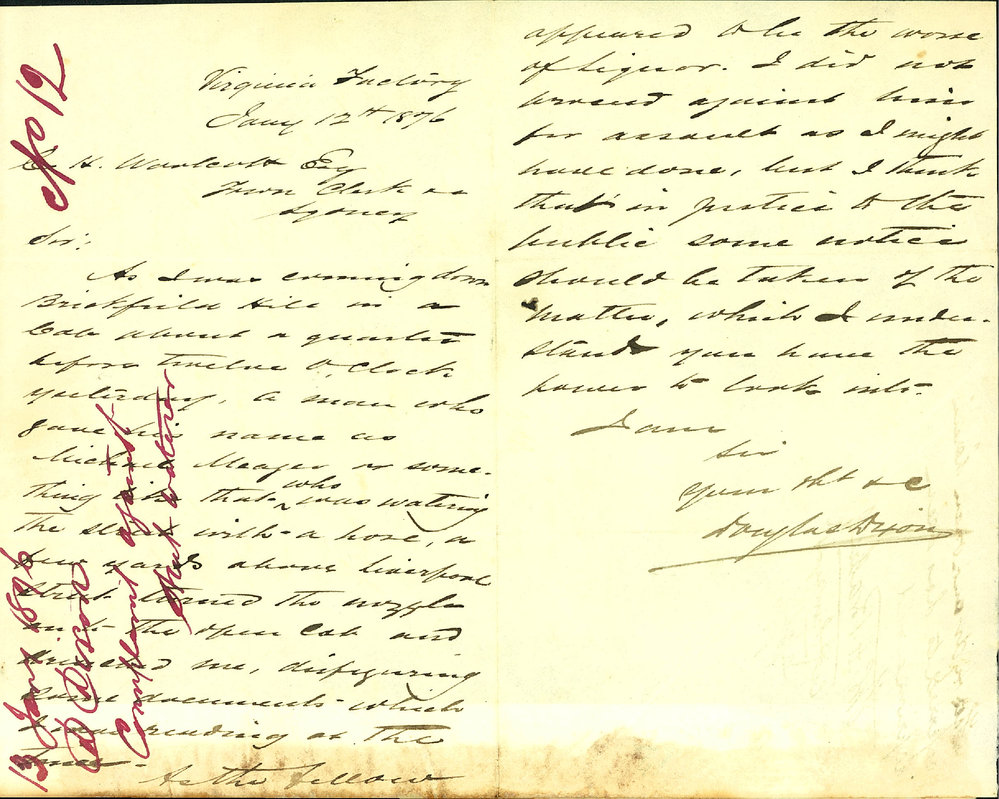 No 12
Virginia Factory
Jany 12th 1876
C. H. Woolcott Esq
Town Clerk &c
Sydney
Sir;
As I was coming down
Brickfield Hill in a
Cab about a quarter
before twelve O,Clock
yesterday, a man who
gave his name as
Michael Meager or some-
thing like that who was watering
the street with a hose, a
few yards above Liverpool
Street turned the nozzle
into the open Cab and
drenched me, disfiguring
some documents which
I was reading at the
time.
As the fellow
appeared to be the worse
of liquor. I did not
proceed against him
for assault as I might
have done, but I think
that in justice to the
public some notice
should be taken of the
matter, which I under-
stand you have the
power to look into.
I am
Sir
Your Obt &c
Douglas Dixon
13 Jany 1876
D Dixon
Complaint against
Street waterer